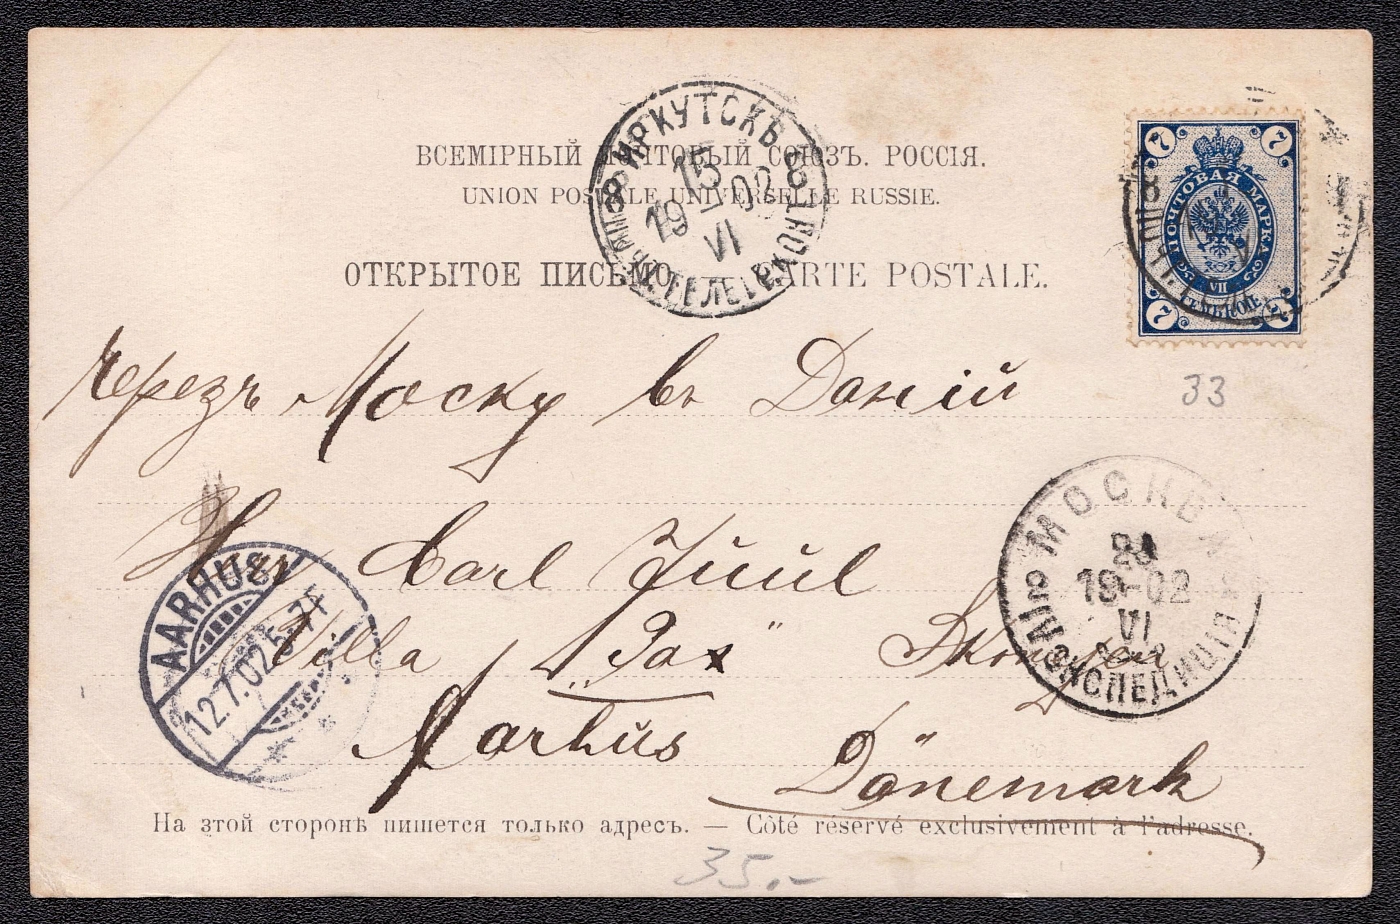 ВСЕМІРНЫЙ ПОЧТОВЫЙ СОЮЗЪ. РОССІЯ.
UNION POSTALE UNIVERSELLE RUSSIE.
ОТКРЫТОЕ ПИСЬМО. CARTE POSTALE.
ИРКУТСКЪ
15
19 - 02
VI
7 7
ПОЧТОВАЯ МАРКА
VII
СЕМЬ КОП.
7 7
33
Черезъ Моску въ Даній
Carl Juul
Villa „Pax"
Aarhus
Dänemark
МОСКВА
19-02
VI
ЭКСПЕДИЦІЯ
AARHUS
12.7.02.5-7F
На этой сторонѣ пишется только адресъ. — Côté réservé exclusivement à l'adresse.
35.-